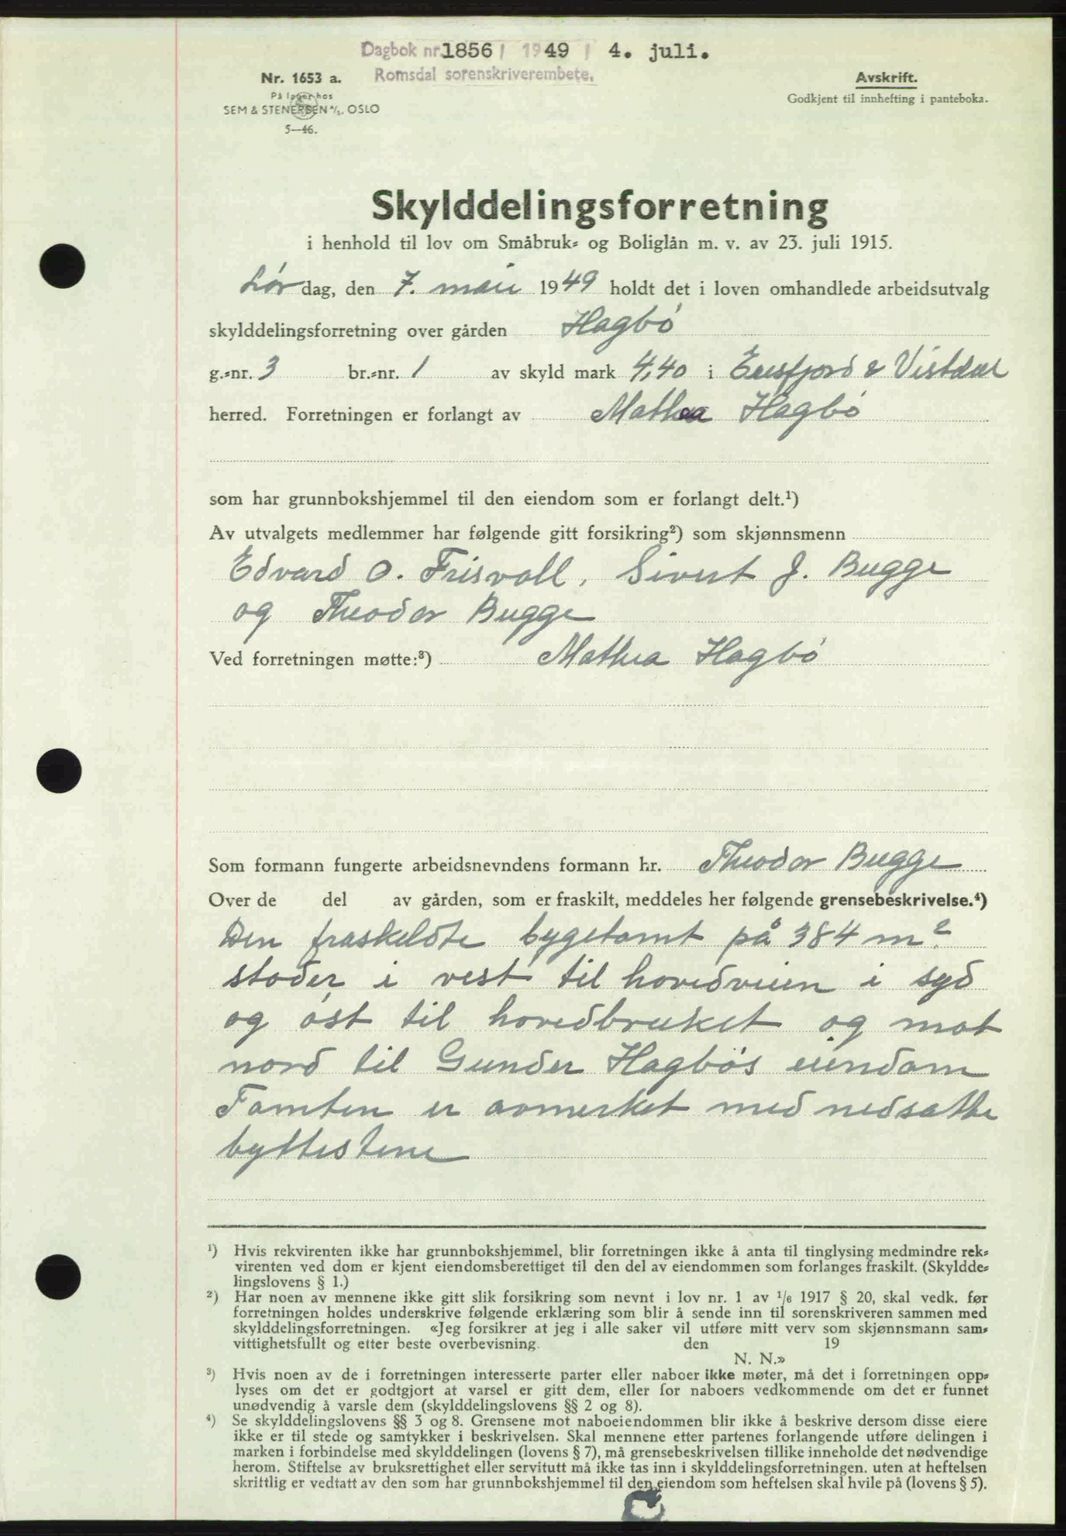 Dagbok nr. 1856 / 1949 / 4. juli.
Romsdal sorenskriverembete.
Nr. 1653 a.
På lager hos
SEM & STENERSEN A/S. OSLO
5—46.
Avskrift.
Godkjent til innhefting i panteboka.
Skylddelingsforretning
i henhold til lov om Småbruk- og Boliglån m. v. av 23. juli 1915.
Lørdag, den 7. mai 1949 holdt det i loven omhandlede arbeidsutvalg
skylddelingsforretning over gården Hagbö
g.-nr. 3 br.-nr. 1 av skyld mark 4,40 i Eresfjord & Vistdal
herred. Forretningen er forlangt av Mathea Hagbö
som har grunnbokshjemmel til den eiendom som er forlangt delt.¹)
Av utvalgets medlemmer har følgende gitt forsikring²) som skjønnsmenn
Edvard O. Frisvoll, Sivert J. Bugge
og Theodor Bugge
Ved forretningen møtte:³) Mathea Hagbö
Som formann fungerte arbeidsnevndens formann hr. Theodor Bugge
Over de del av gården, som er fraskilt, meddeles her følgende grensebeskrivelse.⁴)
Den fraskeldte bygetomt på 384 m².
stöder i vest til hovedveien i syd
og öst til hovedbruket og mot
nord til Gunder Hagbös eiendom
Tomten er avmerket med nedsatte
byttestene
¹) Hvis rekvirenten ikke har grunnbokshjemmel, blir forretningen ikke å anta til tinglysing medmindre rek-
virenten ved dom er kjent eiendomsberettiget til den del av eiendommen som forlanges fraskilt. (Skyldde-
lingslovens § 1.)
²) Har noen av mennene ikke gitt slik forsikring som nevnt i lov nr. 1 av 1/6 1917 § 20, skal vedk. før
forretningen holdes underskrive følgende erklæring som blir å sende inn til sorenskriveren sammen med
skylddelingsforretningen. «Jeg forsikrer at jeg i alle saker vil utføre mitt verv som skjønnsmann sam-
vittighetsfullt og etter beste overbevisning. den 19
N. N.»
³) Hvis noen av de i forretningen interesserte parter eller naboer ikke møter, må det i forretningen opp-
lyses om det er godtgjort at varsel er gitt dem, eller for naboers vedkommende om det er funnet
unødvendig å varsle dem (skylddelingslovens §§ 2 og 8).
⁴) Se skylddelingslovens §§ 3 og 8. Grensene mot naboeiendommen blir ikke å beskrive dersom disse eiere
ikke er til stede og samtykker i beskrivelsen. Skal mennene etter partenes forlangende utføre delingen i
marken i forbindelse med skylddelingen (lovens § 7), må grensebeskrivelsen tillike inneholde det nødvendige
herom. Stiftelse av bruksrettighet eller servitutt må ikke tas inn i skylddelingsforretningen. uten at heftelsen
skriftlig er vedtatt av den som har grunnbokshjemmel til den eiendom som heftelsen skal hvile på (lovens § 5).